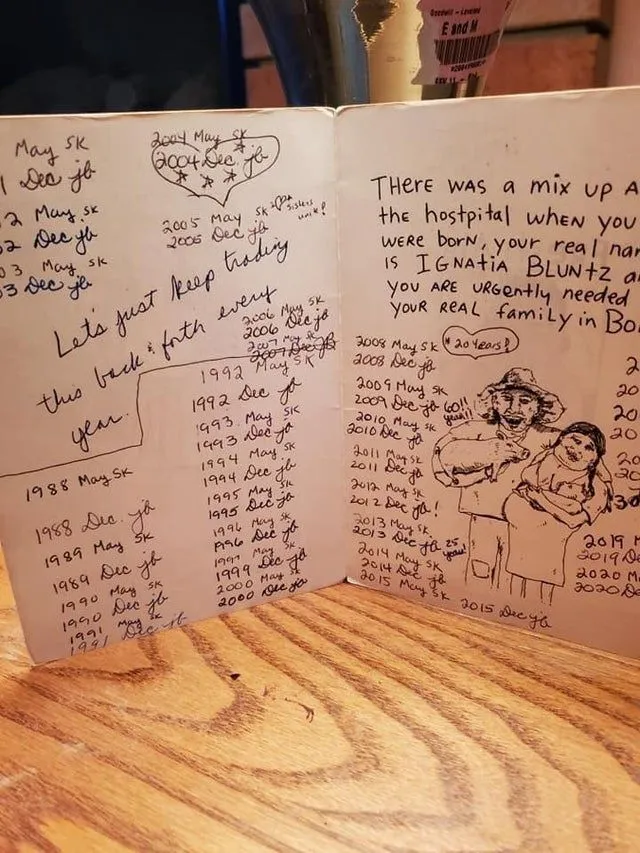 Goodwill - Leveled
E and M
May sk
1 Dec jb
2 May sk
02 Dec jb
03 May sk
03 Dec jb
2004 May sk
2004 Dec jb
2005 May sk
sisters
2005 Dec jb
Let's just keep trading
this back & forth every
year.
2006 May sk
2006 Dec jb
2007 May sk
2007 Dec jb
1988 May sk
1988 Dec. jb
1989 May sk
1989 Dec jb
1990 May sk
1990 Dec jb
1991 May sk
1991 Dec jb
1992 May sk
1992 Dec jb
1993 May sk
1993 Dec jb
1994 May sk
1994 Dec jb
1995 May sk
1995 Dec jb
1996 May sk
1996 Dec jb
May sk
1999 Dec jb
2000 May sk
2000 Dec jb
THERE WAS a mix up A
the hostpital WHEN YOU
WERE born, your real nam
IS IGNATIA BLUNTZ a
YOU ARE URGENTLY needed
YOUR REAL family in Bo
2008 May sk
* 20 years!
2008 Dec jb
2009 May sk
2009 Dec jb
2010 May sk
2010 Dec jb
2011 May sk
2011 Dec jb
2012 May sk
2012 Dec jb!
2013 May sk
2013 Dec jb 25 years!
2014 May sk
2014 Dec jb
2015 May sk
2015 Dec jb
2
20
20
20
20
20
2019 M
2019 De
2020 M
2020 De